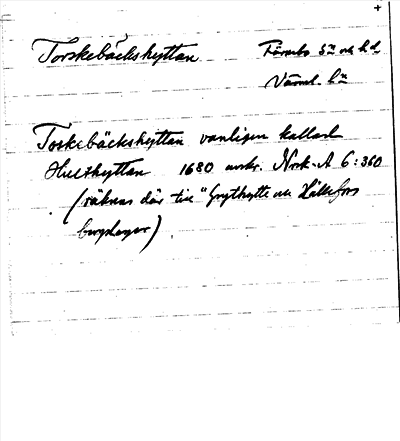 +
Torskebäckshyttan Färnebo sn o. hd
Värml. ln
Torskebäckshyttan vanligen kallad
Hulthyttan 1680 avskr. Nork. A 6:360
(räknas där till "Grythytte och Hällefors
bergslager)